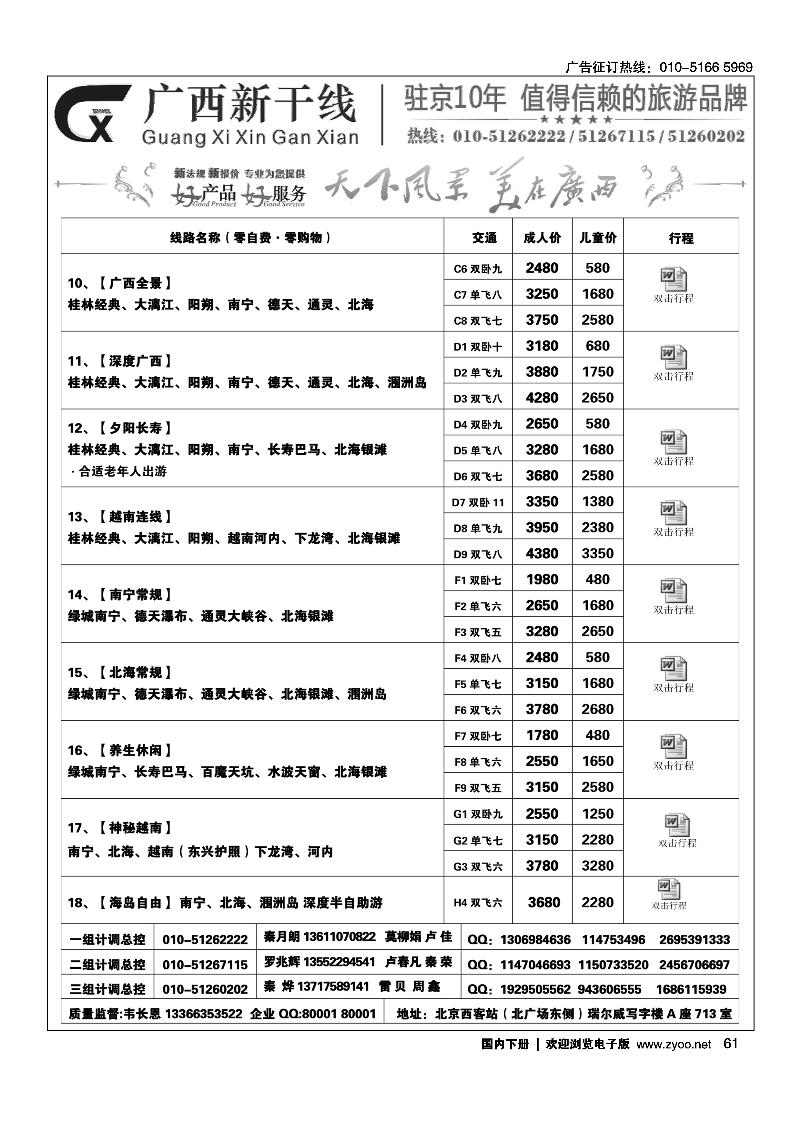 广告征订热线：010-5166 5969
TRAVEL
GX
广西新干线
Guang Xi Xin Gan Xian
驻京10年 值得信赖的旅游品牌
★★★★★
热线：010-51262222 / 51267115 / 51260202
新法规 新报价 专业为您提供
好产品 好服务
Good Product Good Service
天下风景 美在廣西
线路名称（零自费·零购物） 交通 成人价 儿童价 行程
10、【广西全景】
桂林经典、大漓江、阳朔、南宁、德天、通灵、北海
C6 双卧九 2480 580
C7 单飞八 3250 1680
C8 双飞七 3750 2580
双击行程
11、【深度广西】
桂林经典、大漓江、阳朔、南宁、德天、通灵、北海、涠洲岛
D1 双卧十 3180 680
D2 单飞九 3880 1750
D3 双飞八 4280 2650
双击行程
12、【夕阳长寿】
桂林经典、大漓江、阳朔、南宁、长寿巴马、北海银滩
·合适老年人出游
D4 双卧九 2650 580
D5 单飞八 3280 1680
D6 双飞七 3680 2580
双击行程
13、【越南连线】
桂林经典、大漓江、阳朔、越南河内、下龙湾、北海银滩
D7 双卧 11 3350 1380
D8 单飞九 3950 2380
D9 双飞八 4380 3350
双击行程
14、【南宁常规】
绿城南宁、德天瀑布、通灵大峡谷、北海银滩
F1 双卧七 1980 480
F2 单飞六 2650 1680
F3 双飞五 3280 2650
双击行程
15、【北海常规】
绿城南宁、德天瀑布、通灵大峡谷、北海银滩、涠洲岛
F4 双卧八 2480 580
F5 单飞七 3150 1680
F6 双飞六 3780 2680
双击行程
16、【养生休闲】
绿城南宁、长寿巴马、百魔天坑、水波天窗、北海银滩
F7 双卧七 1780 480
F8 单飞六 2550 1650
F9 双飞五 3150 2580
双击行程
17、【神秘越南】
南宁、北海、越南（东兴护照）下龙湾、河内
G1 双卧九 2550 1250
G2 单飞七 3150 2280
G3 双飞六 3780 3280
双击行程
18、【海岛自由】 南宁、北海、涠洲岛 深度半自助游 H4 双飞六 3680 2280
双击行程
一组计调总控 010-51262222 秦月朗 13611070822 莫柳娟 卢 佳 QQ：1306984636 114753496 2695391333
二组计调总控 010-51267115 罗兆辉 13552294541 卢春凡 秦 荣 QQ：1147046693 1150733520 2456706697
三组计调总控 010-51260202 秦 烨 13717589141 雷 贝 周 鑫 QQ：1929505562 943606555 1686115939
质量监督:韦长恩 13366353522 企业 QQ:80001 80001 地址：北京西客站（北广场东侧）瑞尔威写字楼 A 座 713 室
国内下册 | 欢迎浏览电子版 www.zyoo.net 61